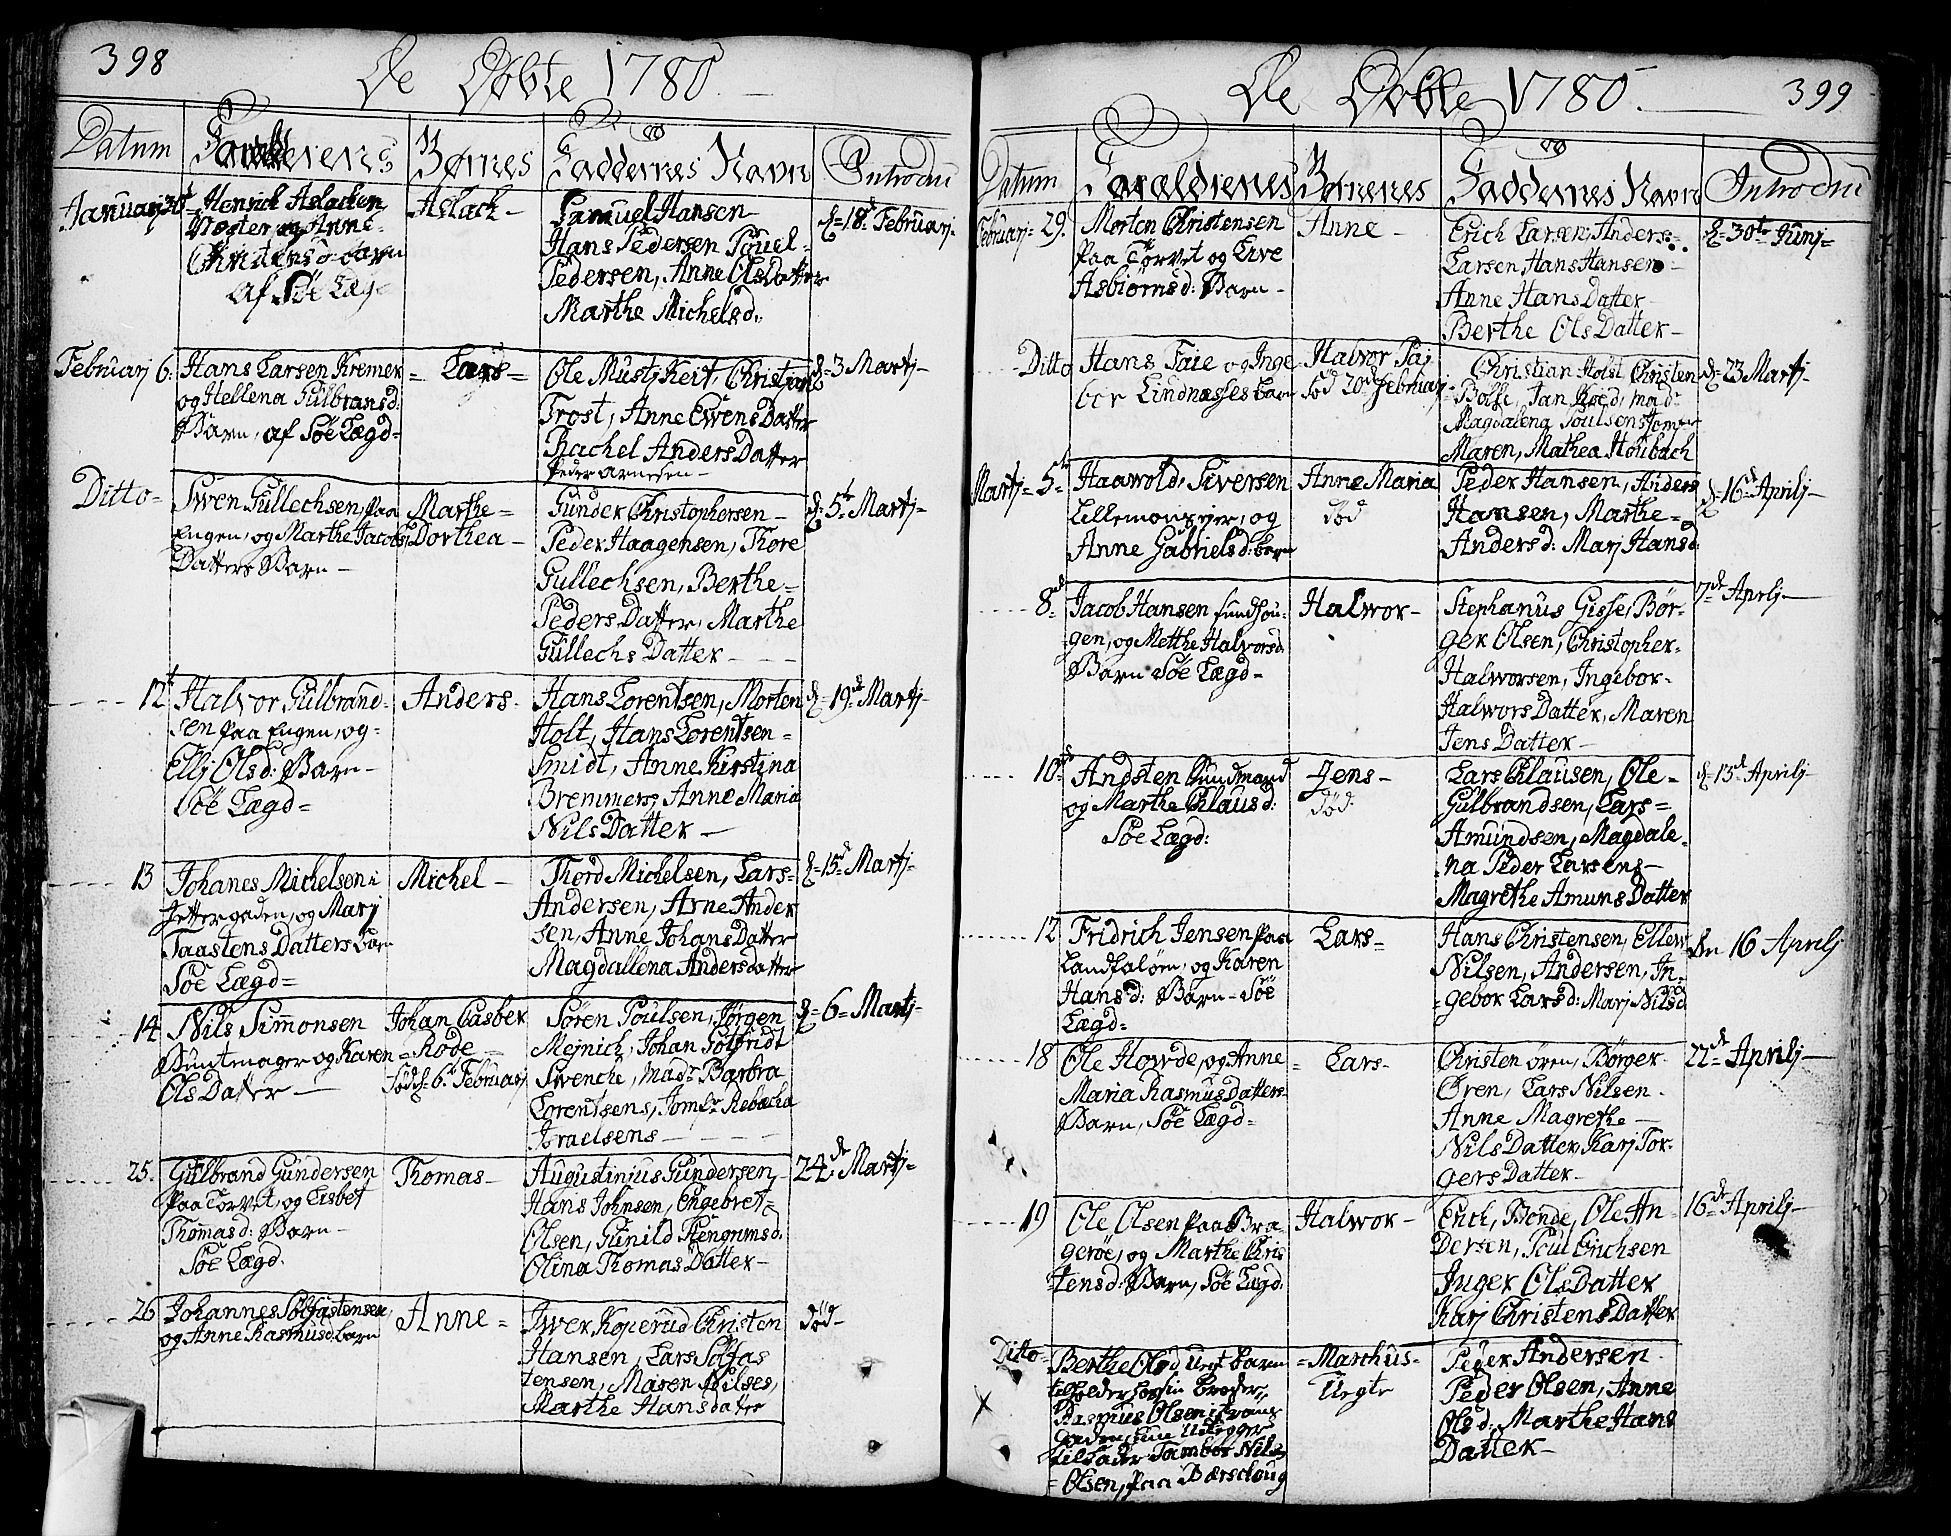 398
De Døbte 1780
Datum
Børnes
Faddernes Navn
Introdu
Januarj 30d
Henrich Aslachsen
Næster og Anne
Christensd barn
af Søe Lægd
Aslach
Samuel Hansen
Hans Pedersen Pouel
Pedersen, Anne OlsDatter
Marthe Michelsd:
d. 18d Februarj
Februarj 6.
Hans Larsen Kremer
og Hellena Gulbransd:
Barn, af Søe Lægd
Lars
Ole Mustj Keit, Christjan
Trost, Anne EwensDatter
Rachel AndersDatter
Peder Arnesen
d. 3 Martj
Ditto
Swen Gullechsen, paa
Engen, og Marthe Jacobs
Datters Barn
Marthe
Dorthea
Gunder Christophersen
Peder Haagensen, Thore
Gullechsen, Berthe
PedersDatter, Marthe
Gullechs Datter
d. 5te Martj
12t
Halvor Gulbrand
sen paa Engen, og
Ellj Olsd: Barn
Søe Lægd
Anders
Hans Lorentsen, Morten
Holt, Hans Lorentsen
Smidt, Anne Kirstina
Bremmers, Anne Maria
NilsDatter
d. 19d Martj
13
Johanes Michelsen i
gaden, og Marj
Taastens Datters barn
Søe Lægd
Michel
Thord Michelsen, Lars
Andersen, Arne Ander
sen, Anne JohansDatter
Magdallena Andersdatter
d. 15d Martj
14
Nils Simonsen
Buntmager og Karen
OlsDatter
Johan Casber
Rode
Fød d. 6t Februarj
Søren Poulsen, Jørgen
Mejnich, Johan Gotfridt
Swenche, Mad: Barbra
Lorentsens, Jomfr Rebecha
Israelsens
d. 6 Martj
25.
Gulbrand Gundersen
paa Torvet, og Lisbet
Thomasd: Barn
Søe Lægd.
Thomas
Augustinius Gundersen,
Hans Johnsen, Engebret
Olsen, Gunild Stengrimsd.
Olina ThomasDatter
24de Martj
26
Johannes Solfastensen
og Anne Rasmusd barn
Anne
Iwer Koperud Christen
Hansen, Lars Solfas
tensen, Maren Nilses,
Marthe Hansdatter
død
De Døbte 1780.
399
Datum
Forældrenes
Børnenes
Faddernes Navn
Introdu
Februarj 29.
Morten Christensen
paa Torvet og Live
Asbiørnsd: Barn
Anne
Erich Larsen, Anders
Larsen, Hans Hansen
Anne HansDatter
Berthe OlsDatter
d. 30te Junj
Ditto
Hans Faie og Inge
bor Lindnæsses barn
Halvor Faj
fød 20d Februarj
Christian Holst Christen
Bolse, Jan Roed, mad
Magdalena Poulsen Jomfr
Maren, Mathea Houbach
d. 23 Martj
Martj 5te
Haawold, Siversen
Lillemonsejer, og
Anne Gabrielsd: barn
Anne Maria
død
Peder Hansen, Anders
Hansen, Marthe
Andersd: Marj Hansd
d. 16d Aprilj
8de
Jacob Hansen Sundhou
gen, og Metthe Halvorsd.
Barn Søe Lægd
Halwor
Stephanus Gisse, Bør
ger Olsen, Christopher
Halworsen, Ingebor
HalworsDatter, Maren
JensDatter
7de Aprilj
10de
Andsten Sundmand
og Marthe Clausd:
Søe Lægd:
Jens
død
Lars Clausen, Ole
Gulbrandsen, Lars
Amundsen, Magdale
na Peder Larsens
Magrethe AmunsDatter
d. 15d Aprilj
12
Fridrich Jensen paa
Landfaløen, og Karen
Hansd: Barn Søe
Lægd
Lars
Hans Christensen, Ellew
Nilsen, Andersen, In
gebor Larsd: Marj Nilsd
den 16 Aprilj
18
Ole Howde, og Anne
Maria RasmusDatters
Barn, Søe Lægd
Lars
Christen Øren, Børger
Øren, Lars Nilsen
Anne Magrethe
NilsDatter, Karj Tor
gersDatter
22de Aprilj
19
Ole Olsen paa Bra
gerøe, og Marthe Chris
tensd: Barn, Søe Lægd.
Halwor
Erich, Bonde, Ole An
dersen, Poul Erichsen
Inger OlsDatter
Karj ChristensDatter
16de Aprilj
Ditto
Berthe Olsd Uegt barn
Rasmus Olsen
Tambor Nils
Olsen, paa Børschoug
Marchus
Uegte
Peder Andersen
Peder Olsen, Anne
Olsd: Marthe Hans
Datter
X